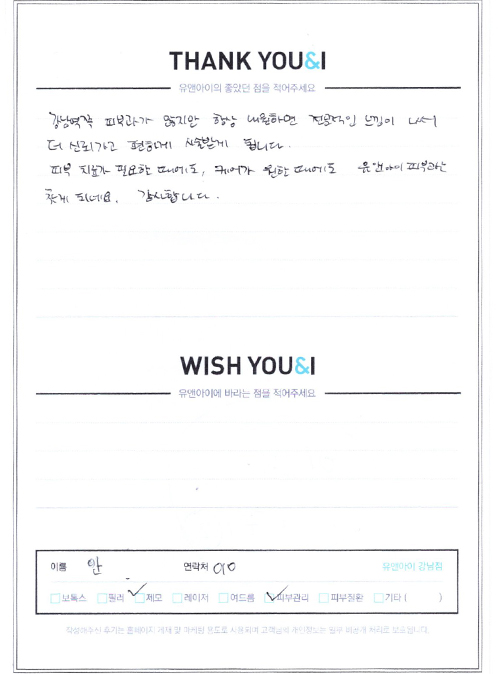 THANK YOU&I
유앤아이의 좋았던 점을 적어주세요
강남역쪽 피부과가 많지만 항상 내원하면 전문적인 느낌이 나서
더 신뢰가고 편하게 시술받게 됩니다.
피부 치료가 필요한 때에도, 케어가 필요한 때에도 유앤아이 피부과는
찾게 되네요. 감사합니다.
WISH YOU&I
유앤아이에 바라는 점을 적어주세요
이름 안 연락처 010 유앤아이 강남점
보톡스 필러 제모 레이저 여드름 피부관리 피부질환 기타 ( )
작성해주신 후기는 홈페이지 게재 및 마케팅 용도로 사용되며 고객님의 개인정보는 일부 비공개 처리로 보호됩니다.